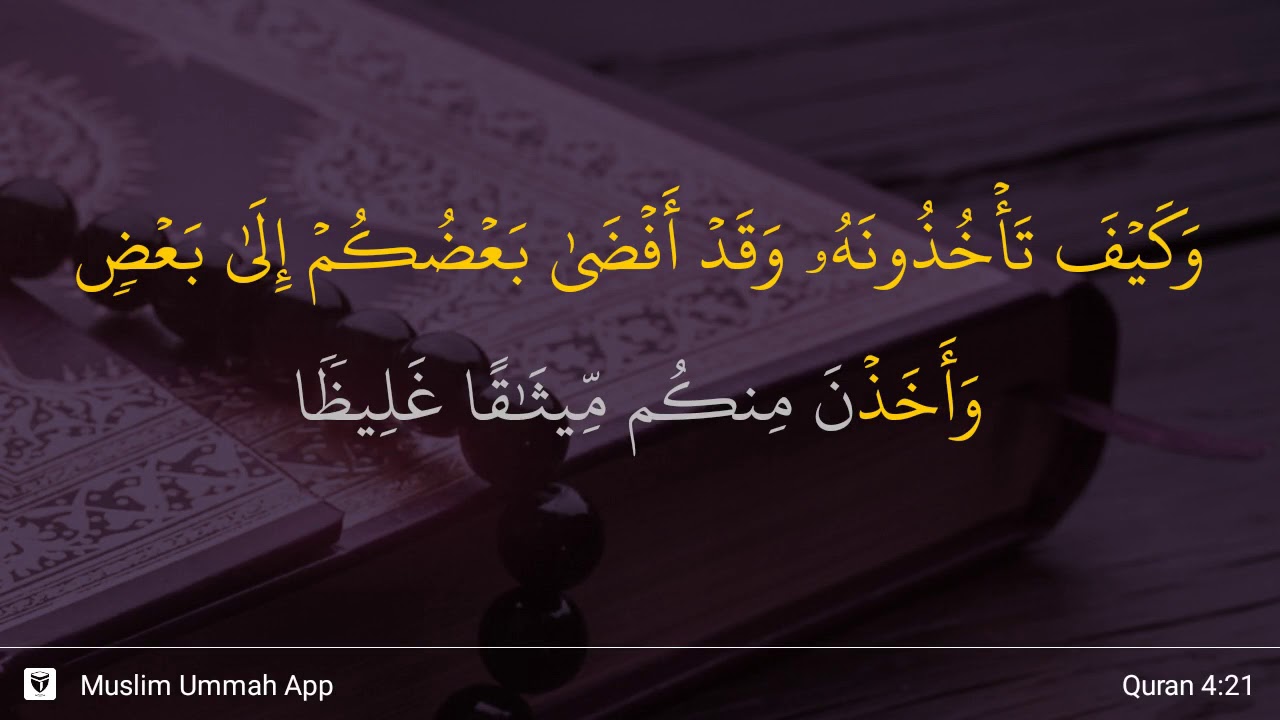 وَكَيۡفَ تَأۡخُذُونَهُۥ وَقَدۡ أَفۡضَىٰ بَعۡضُكُمۡ إِلَىٰ بَعۡضٍ
وَأَخَذۡنَ مِنكُم مِّيثَٰقًا غَلِيظًا
Muslim Ummah App
Quran 4:21